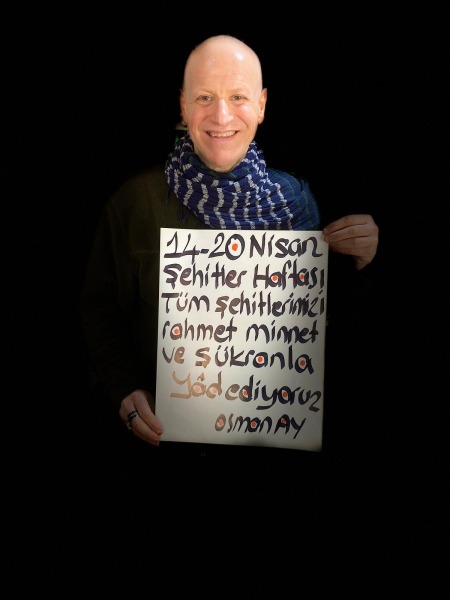 14-20 Nisan
Şehitler Haftası
Tüm şehitlerimizi
rahmet minnet
ve şükranla
Yâd ediyoruz
Osman AY